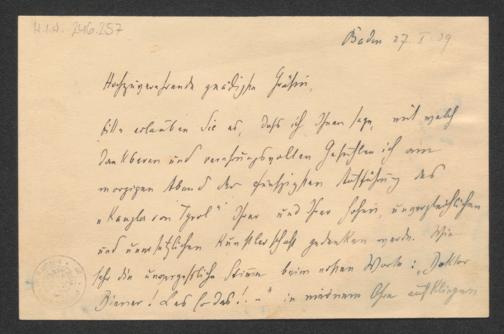 H.I.N. 246.257
Baden 27. I. 39
Hochzuverehrende gnädigste Gräfin,
bitte erlauben Sie es, daß ich Ihnen sage, mit welch
dankbaren und verehrungsvollen Gefühlen ich am
morgigen Abend der fünfzigsten Aufführung des
"Kanzler von Tyrol" Ihrer und Ihrer hohen, unvergleichlichen
und unersetzlichen Künstlerschaft gedenken werde. Wie
seh die unvergeßliche Stimme beim ersten Worte: "Doktor
Biener! - " in meinem Ohre aufklingen